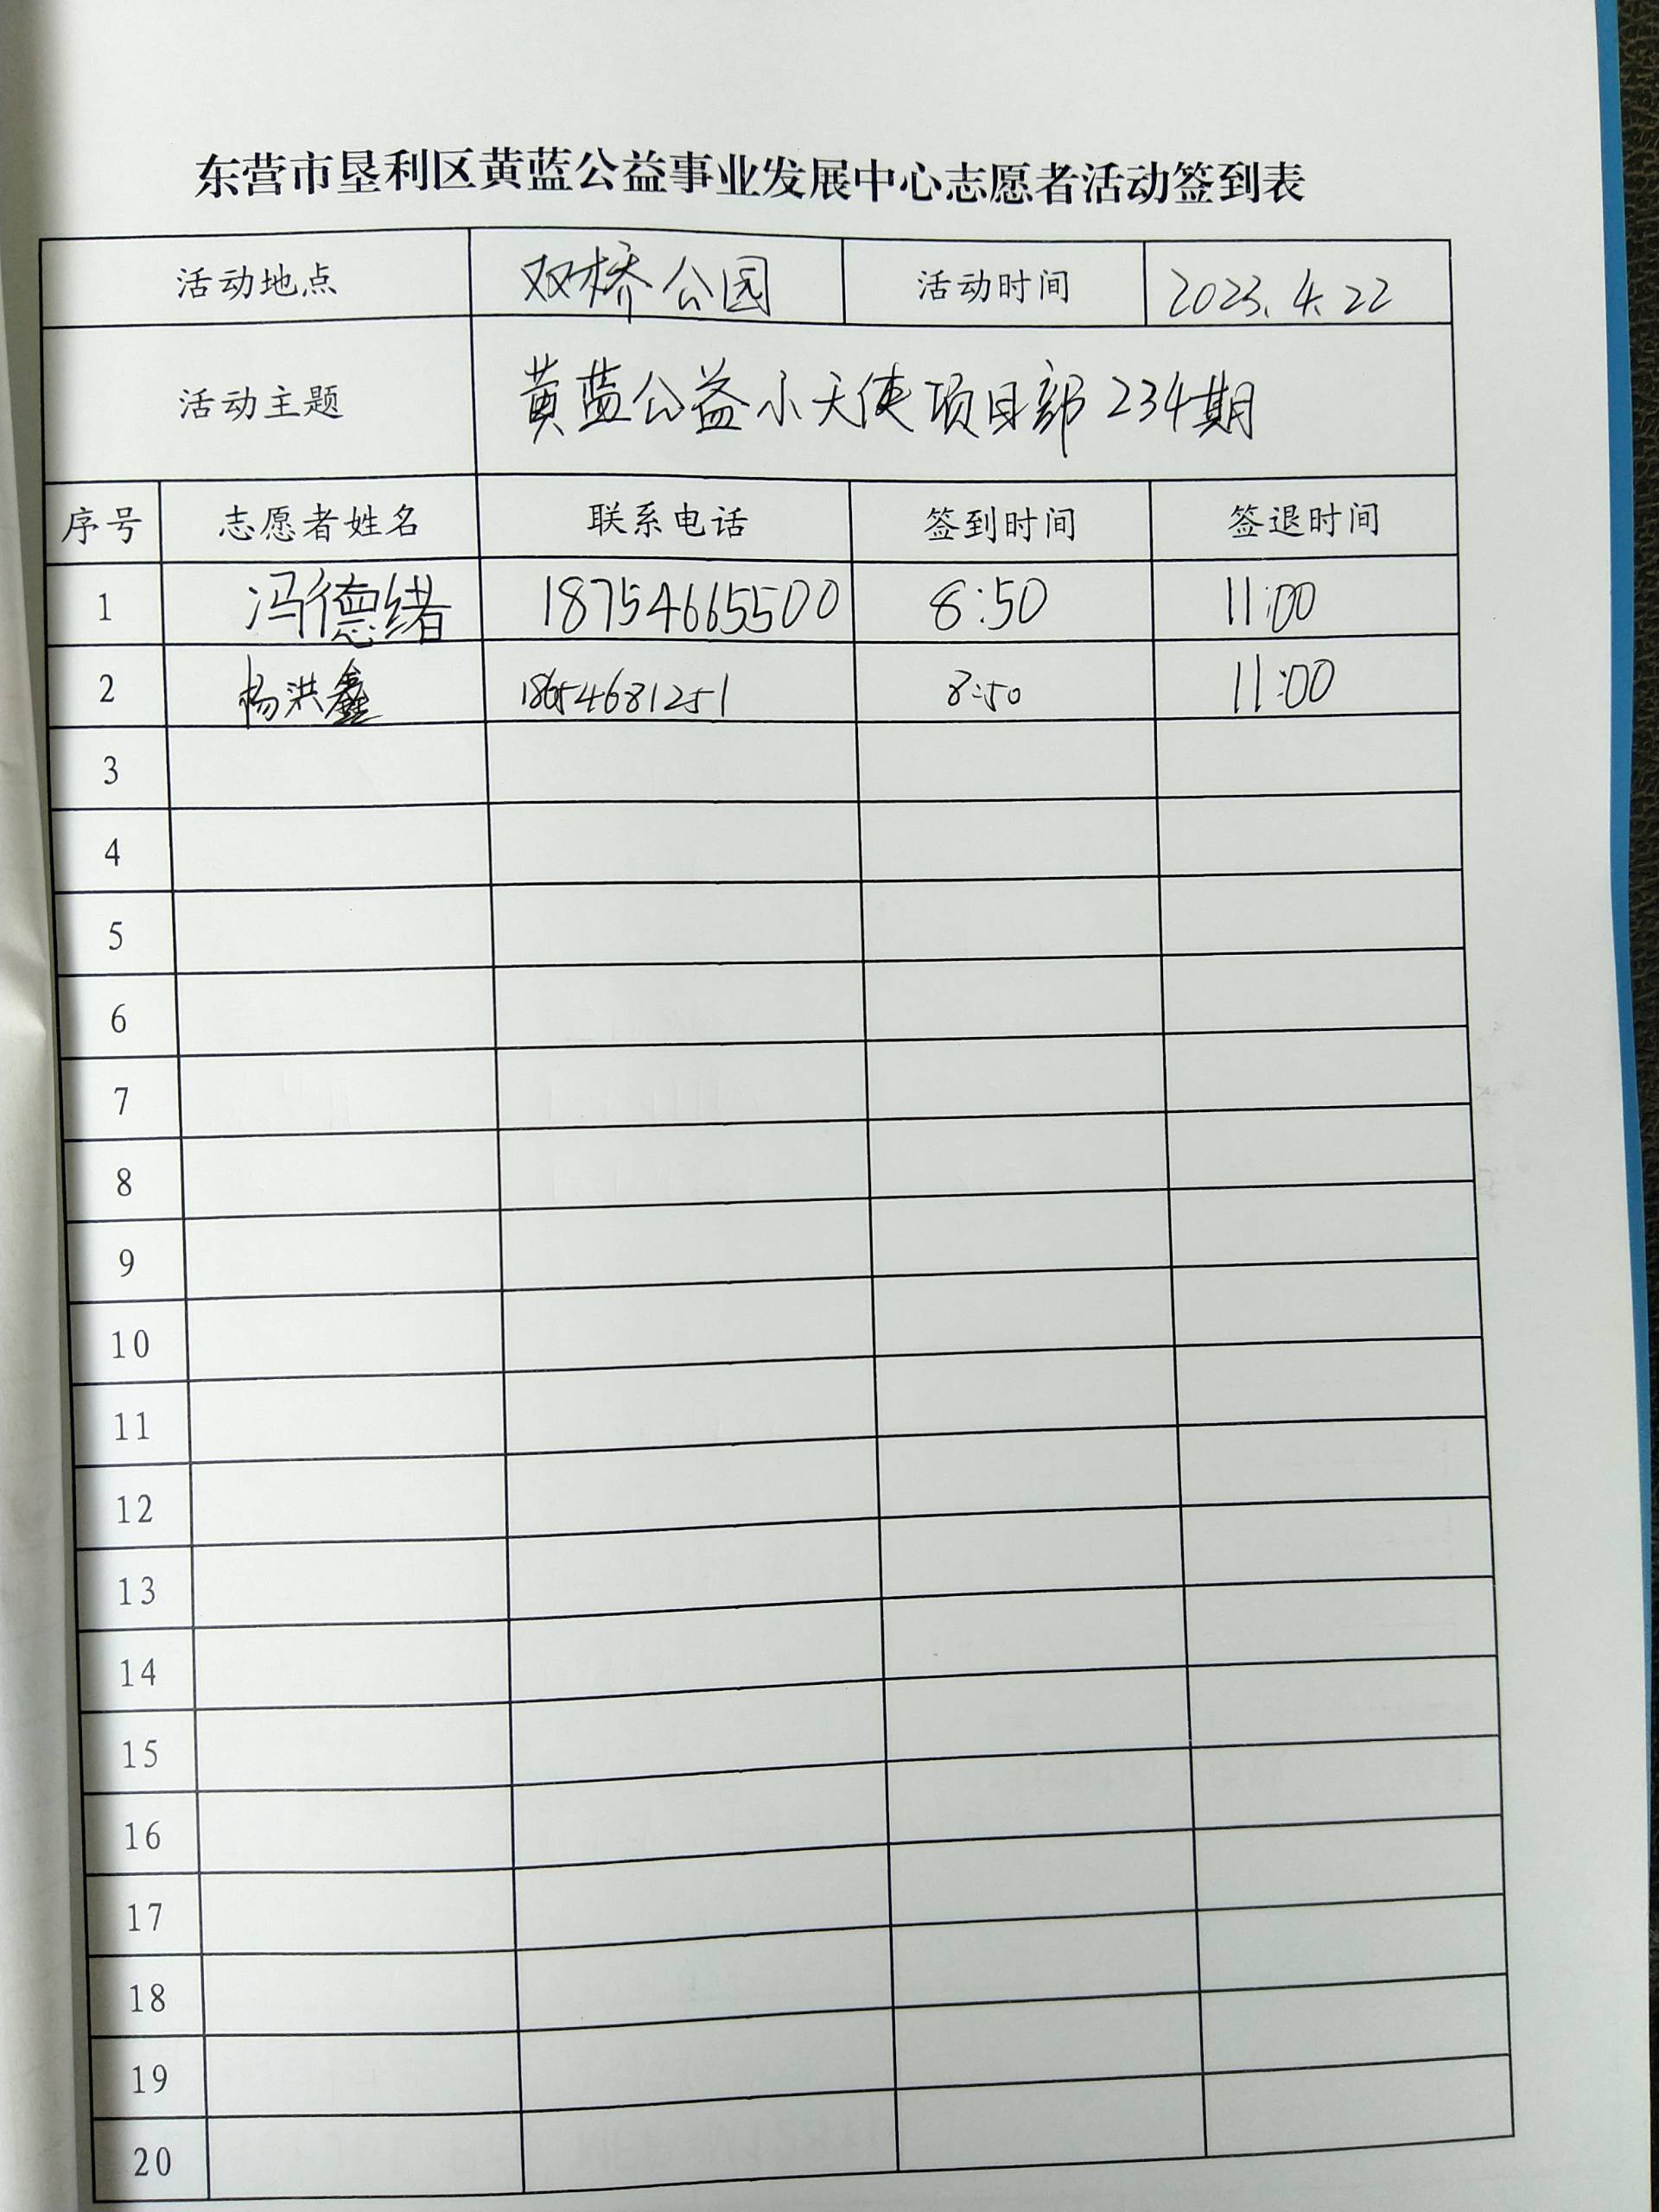 东营市垦利区黄蓝公益事业发展中心志愿者活动签到表
活动地点 双桥公园 活动时间 2023.4.22
活动主题 黄蓝公益小天使项目部234期
序号 志愿者姓名 联系电话 签到时间 签退时间
1 冯德绪 18754665500 8:50 11:00
2 杨洪鑫 18654681251 8:50 11:00
3
4
5
6
7
8
9
10
11
12
13
14
15
16
17
18
19
20